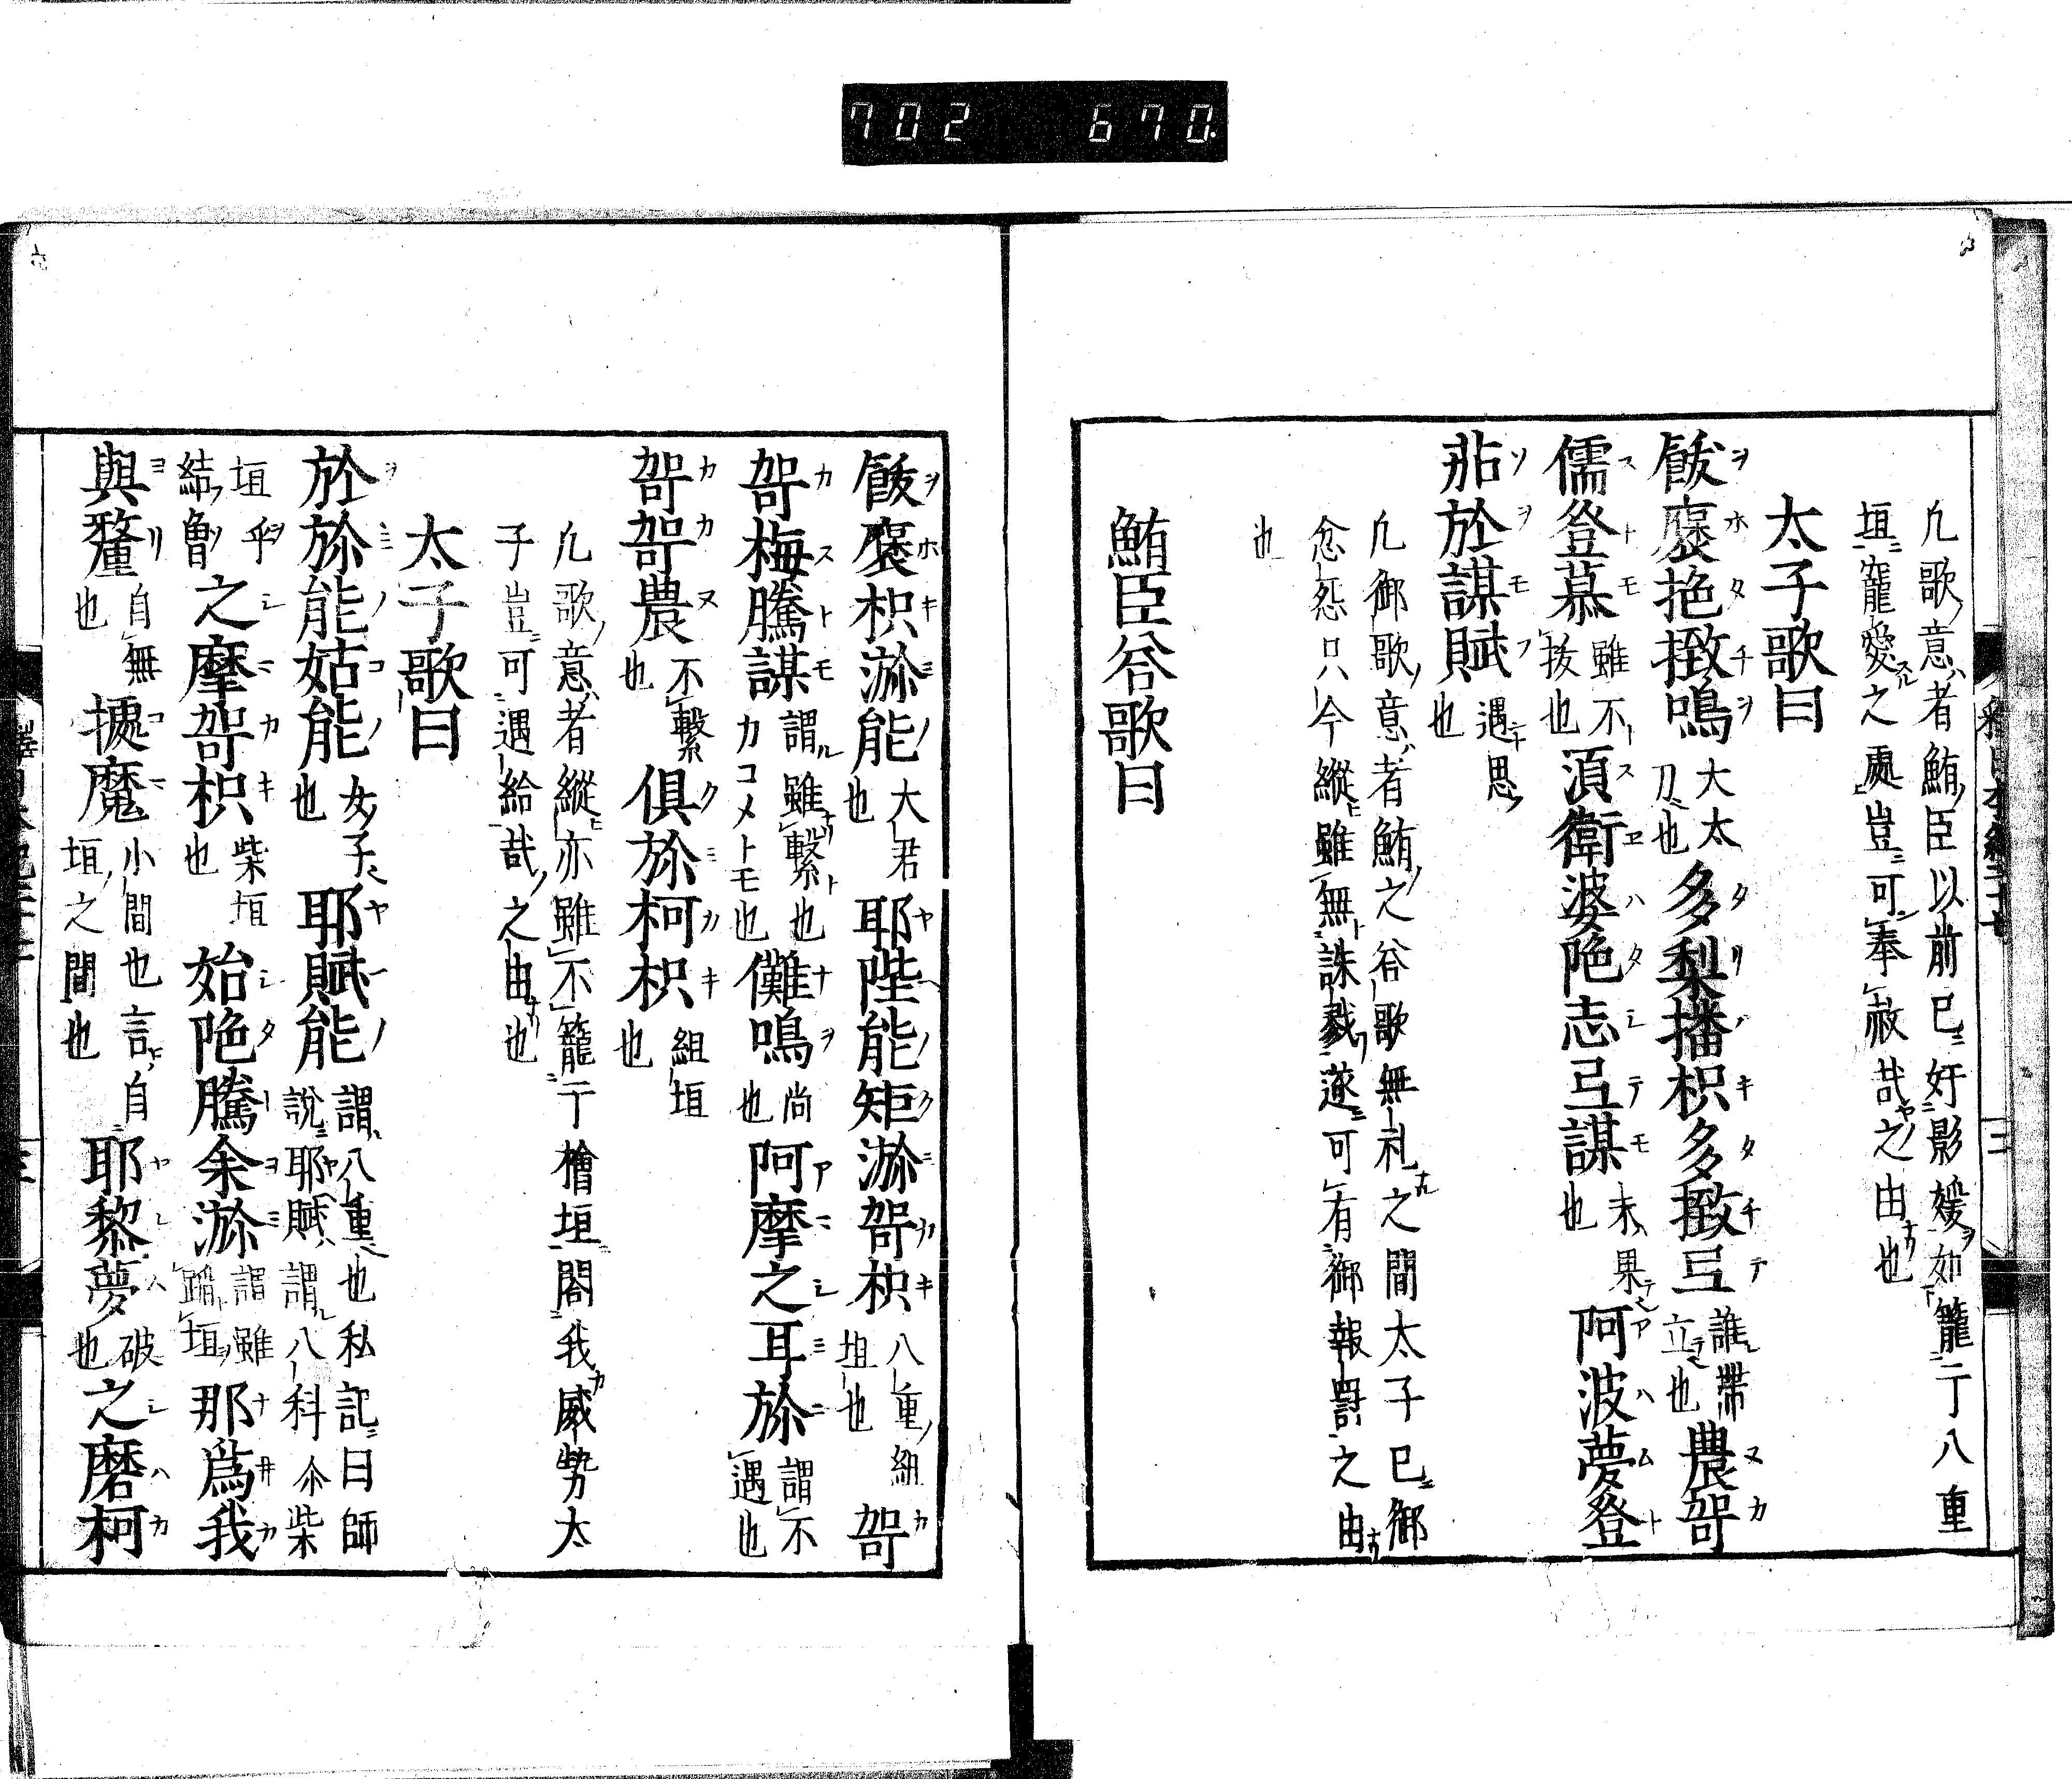 702 670
凢歌意者鮪臣以前已ニ奸影媛ヲ如籠ニ于八重
垣ニ寵愛スル之處豈ニ可奉赦哉之由也
太子歌曰
飫裒陁撽鳴大太刀也多梨播枳多撽弖誰帯立也農哿
儒登慕雖不抜也湏衛婆陁志弖謀未果也阿波夢登
茄於謀賦遇思也
凢御歌意者鮪之答歌無礼之間太子已ニ御
忿怨只今縦雖無誅戮遂ニ可有御報罸之由
也
鮪臣答歌曰
飫裒枳瀰能大君也耶陛能矩瀰哿枳八重組垣也哿
哿梅騰謀謂雖繋也カコメトモ也儺鳴尚也阿摩之耳弥謂不遇也
哿哿農不繋也倶弥柯枳組垣也
凢歌意者縦亦雖不籠于檜垣閤我威勢太
子豈ニ可遇給哉之由也
太子歌曰
於弥能姑能女子也耶賦能謂八重也私記曰師說耶賦謂八科尒柴
垣乎結魯之魔哿枳柴垣也始陁騰余瀰謂雖踰垣那為我
與釐自無也據魔小間也言自垣之間也耶黎夢破也之磨柯